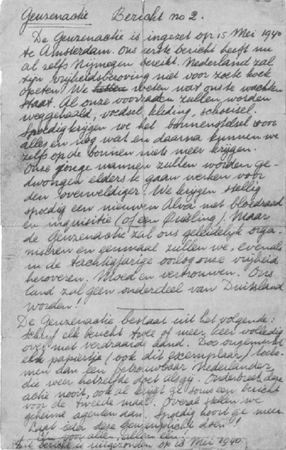 Geuzenactie Bericht no 2.
De Geuzenactie is ingezet op 15 Mei 1940
te Amsterdam. Ons eerste bericht heeft nu
al zelfs Nijmegen bereikt. Nederland zal
zijn vrijheidsberoving niet voor zoete koek
opeten. We weten wat ons te wachten
staat. Al onze voorraden zullen worden
weggehaald, voedsel, kleding, schoeisel,
spoedig krijgen we het bonnenstelsel voor
alles en nog wat en daarna kunnen we
zelfs op de bonnen niets meer krijgen.
Onze jonge mannen zullen worden ge-
dwongen elders te gaan werken voor
den overweldiger. We krijgen stellig
spoedig een nieuwen Alva met bloedraad
en inquisitie (of een Quisling). Maar
de Geuzenactie zal ons geleidelijk orga-
niseren en eenmaal zullen we, evenals
in de tachtigjarige oorlog onze vrijheid
heroveren. Moed en vertrouwen. Ons
land zal geen onderdeel van Duitsland
worden!
De Geuzenactie bestaat uit het volgende:
Schrijf elk bericht twee of meer keer volledig
over, met verdraaide hand. Doe ongemerkt
elk papiertje (ook dit exemplaar) toeko-
men aan een betrouwbaar Nederlander,
die weer hetzelfde doet als gij. Onderbreek deze
actie nooit, ook al krijgt ge soms een bericht
voor de tweede maal. Overal stellen we
geheime agenten aan. Spoedig hoort ge meer.
Eén voor allen, allen een!
Dit bericht is uitgezonden op 18 Mei 1940.